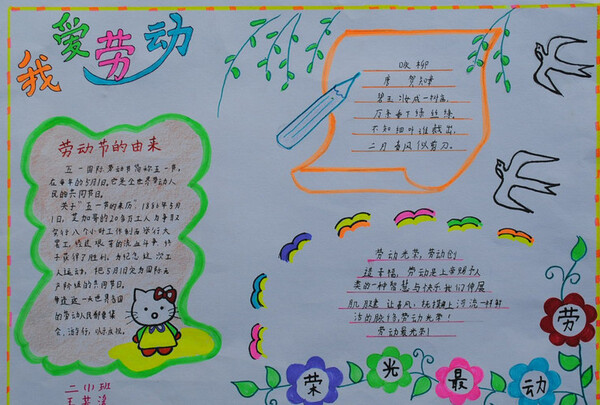 我爱劳动
劳动节的由来
五一国际劳动节简称五一节,
在每年的5月1日。它是全世界劳动人
民的共同节日。
关于“五一节的来历”,1886年5月
1日,芝加哥的20多万工人为争取
实行八个小时工作制而举行大
罢工,
取得了胜利,为纪念这次工
人运动,把5月1日定为国际
的共同节日,
的劳动人民都要集
会、游行,以示庆祝。
二(1)班
咏柳
唐 贺知章
碧玉妆成一树高,
万条垂下绿丝绦,
不知细叶谁裁出,
二月春风似剪刀。
劳动光荣,劳动创
造幸福,劳动是上帝赐予人
类的一种智慧与快乐我们伸展
劳动光荣!
劳动最光荣!
荣光最动劳